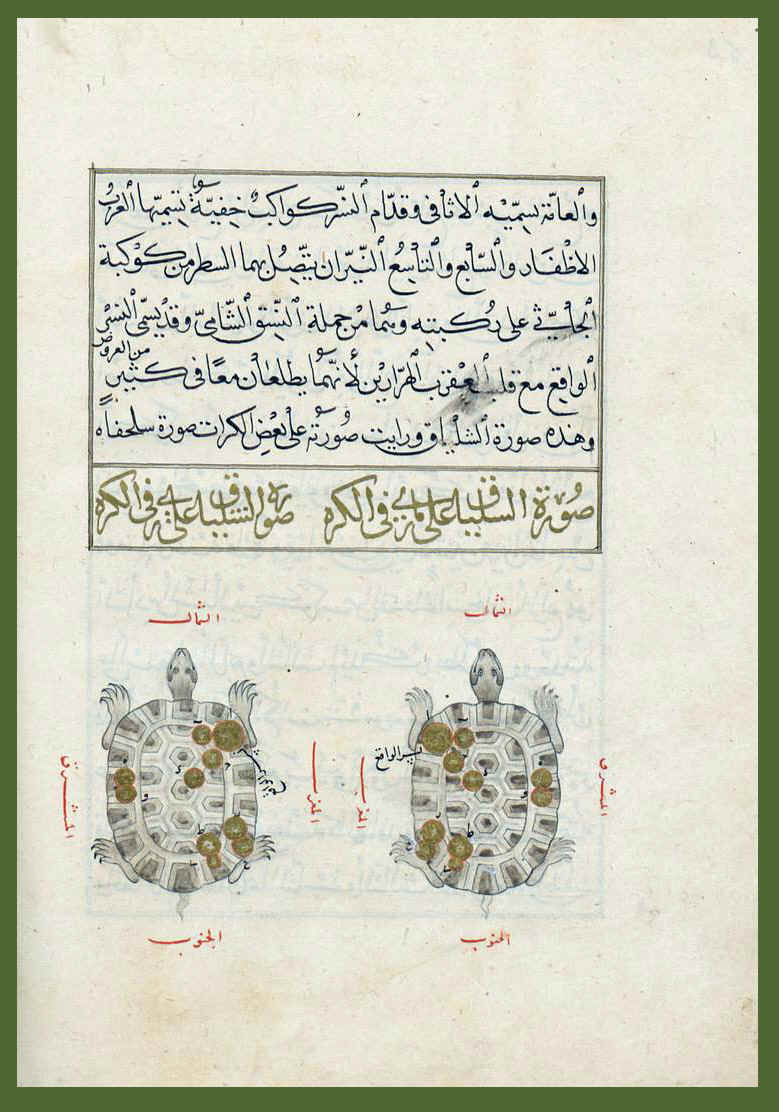 والعامّة يسمّيه الاثافى وقدّام النسّر كواكبٌ خفيّة يسمّيها العرب
الاظفار والسّابع والتاسعُ النيّران يتّصل بهما السطر من كوكبة
الجاثى على رُكبته وهما من جملة النسّق الشّامىّ وقد يسمّى النسر
الواقع مع قلب العقرب الهرّارين لأنّهما يطلعان معًا فى كثيرٍ من العروض
وهذه صورة الشلياق ورايت صورته على بعض الكرات صورة سلحفاه
صورة السلبياق على ما يرى فى الكره
صورة السلبياق على ما يرى فى الكره
الشمال
الشمال
النسر الواقع
المشرق
المغرب
المغرب
المشرق
الجنوب
الجنوب